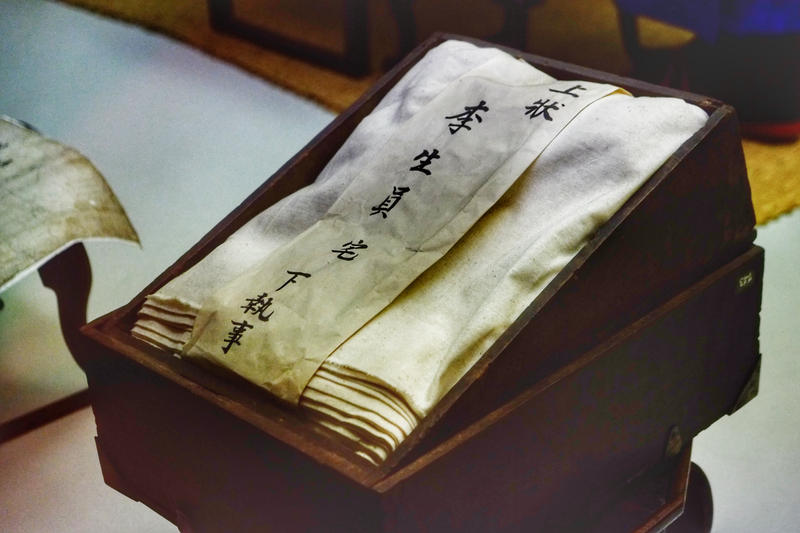 上狀
李生員宅下執事